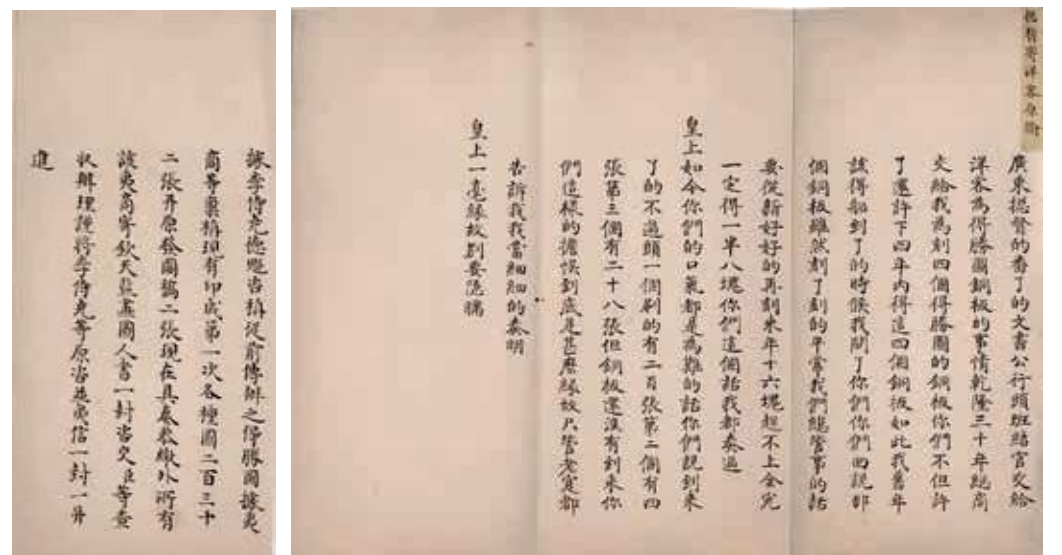 寄洋客原
廣東揔督的番了的文書公行頭班結官交給
洋客為得勝圖銅板的事情乾隆三十年總商
交給我為刻四個得勝圖的銅板你們不但許
了還許下四年內得這四個銅板如此我舊年
該得船到了的時候我問了你們你們回說部
個銅板雖然刻了刻的平常我們總管事的話
要從新好好的再刻來年十六塊趕不上全完
一定得一半八塊你們這個話我都奏過
皇上如今你們的口氣都是為難的話你們說到來
了的不過頭一個刷的有二百張第二個有四
張第三個有二十八張但銅板還沒有到來你
們這樣的擔悞到底是甚麼緣故只管老寔都
告訴我我當細細的奏明
皇上一毫緣故別要隱瞞
據李侍堯德魁咨稱從前傳辦之得勝圖據夷
商等稟稱現有印成第一次各種圖二百三十
二張并原發圖稿二張現在具奏恭繳外所有
該夷商寄欽天監畫圖人書一封咨交臣等查
收辦理謹將李侍堯等原咨並夷信一封一并
進